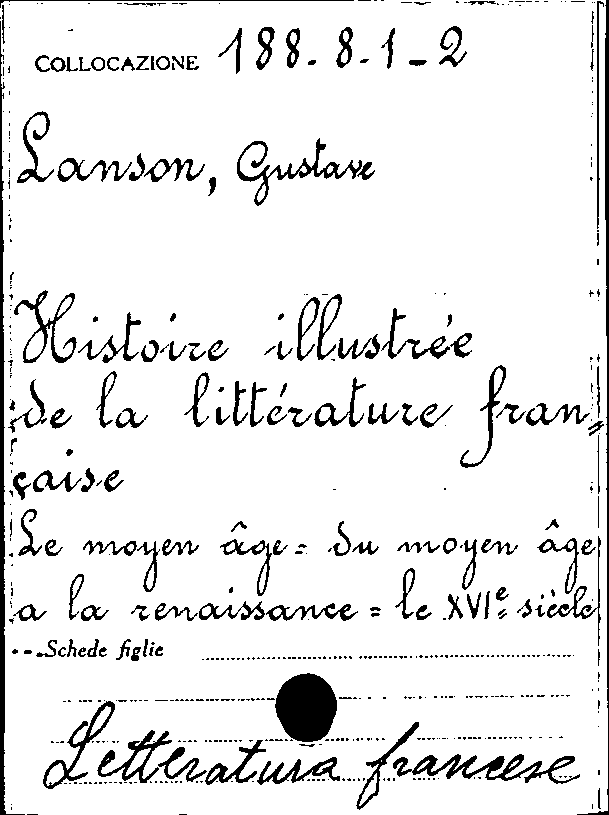 COLLOCAZIONE 188-8-1-2
Lanson, Gustave
Histoire illustrée
de la littérature fran=
çaise
Le moyen âge = du moyen âge
a la renaissance = le XVIe siècle
Schede figlie
Letteratura francese